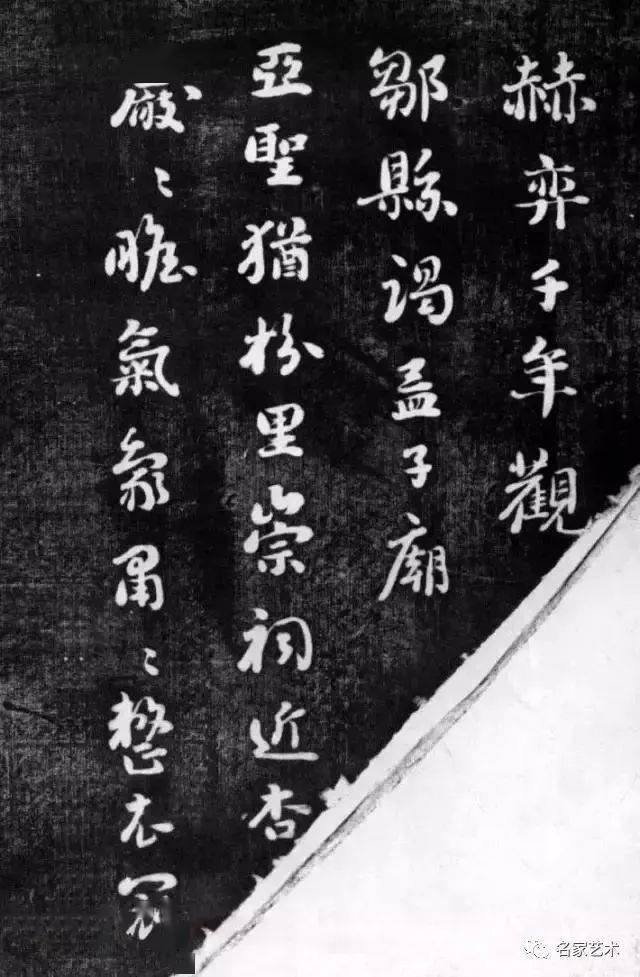 赫弈千年觀
鄒縣謁孟子廟
亞聖猶枌里崇祠近杏
嚴〻瞻氣象肅〻整衣冠
名家艺术